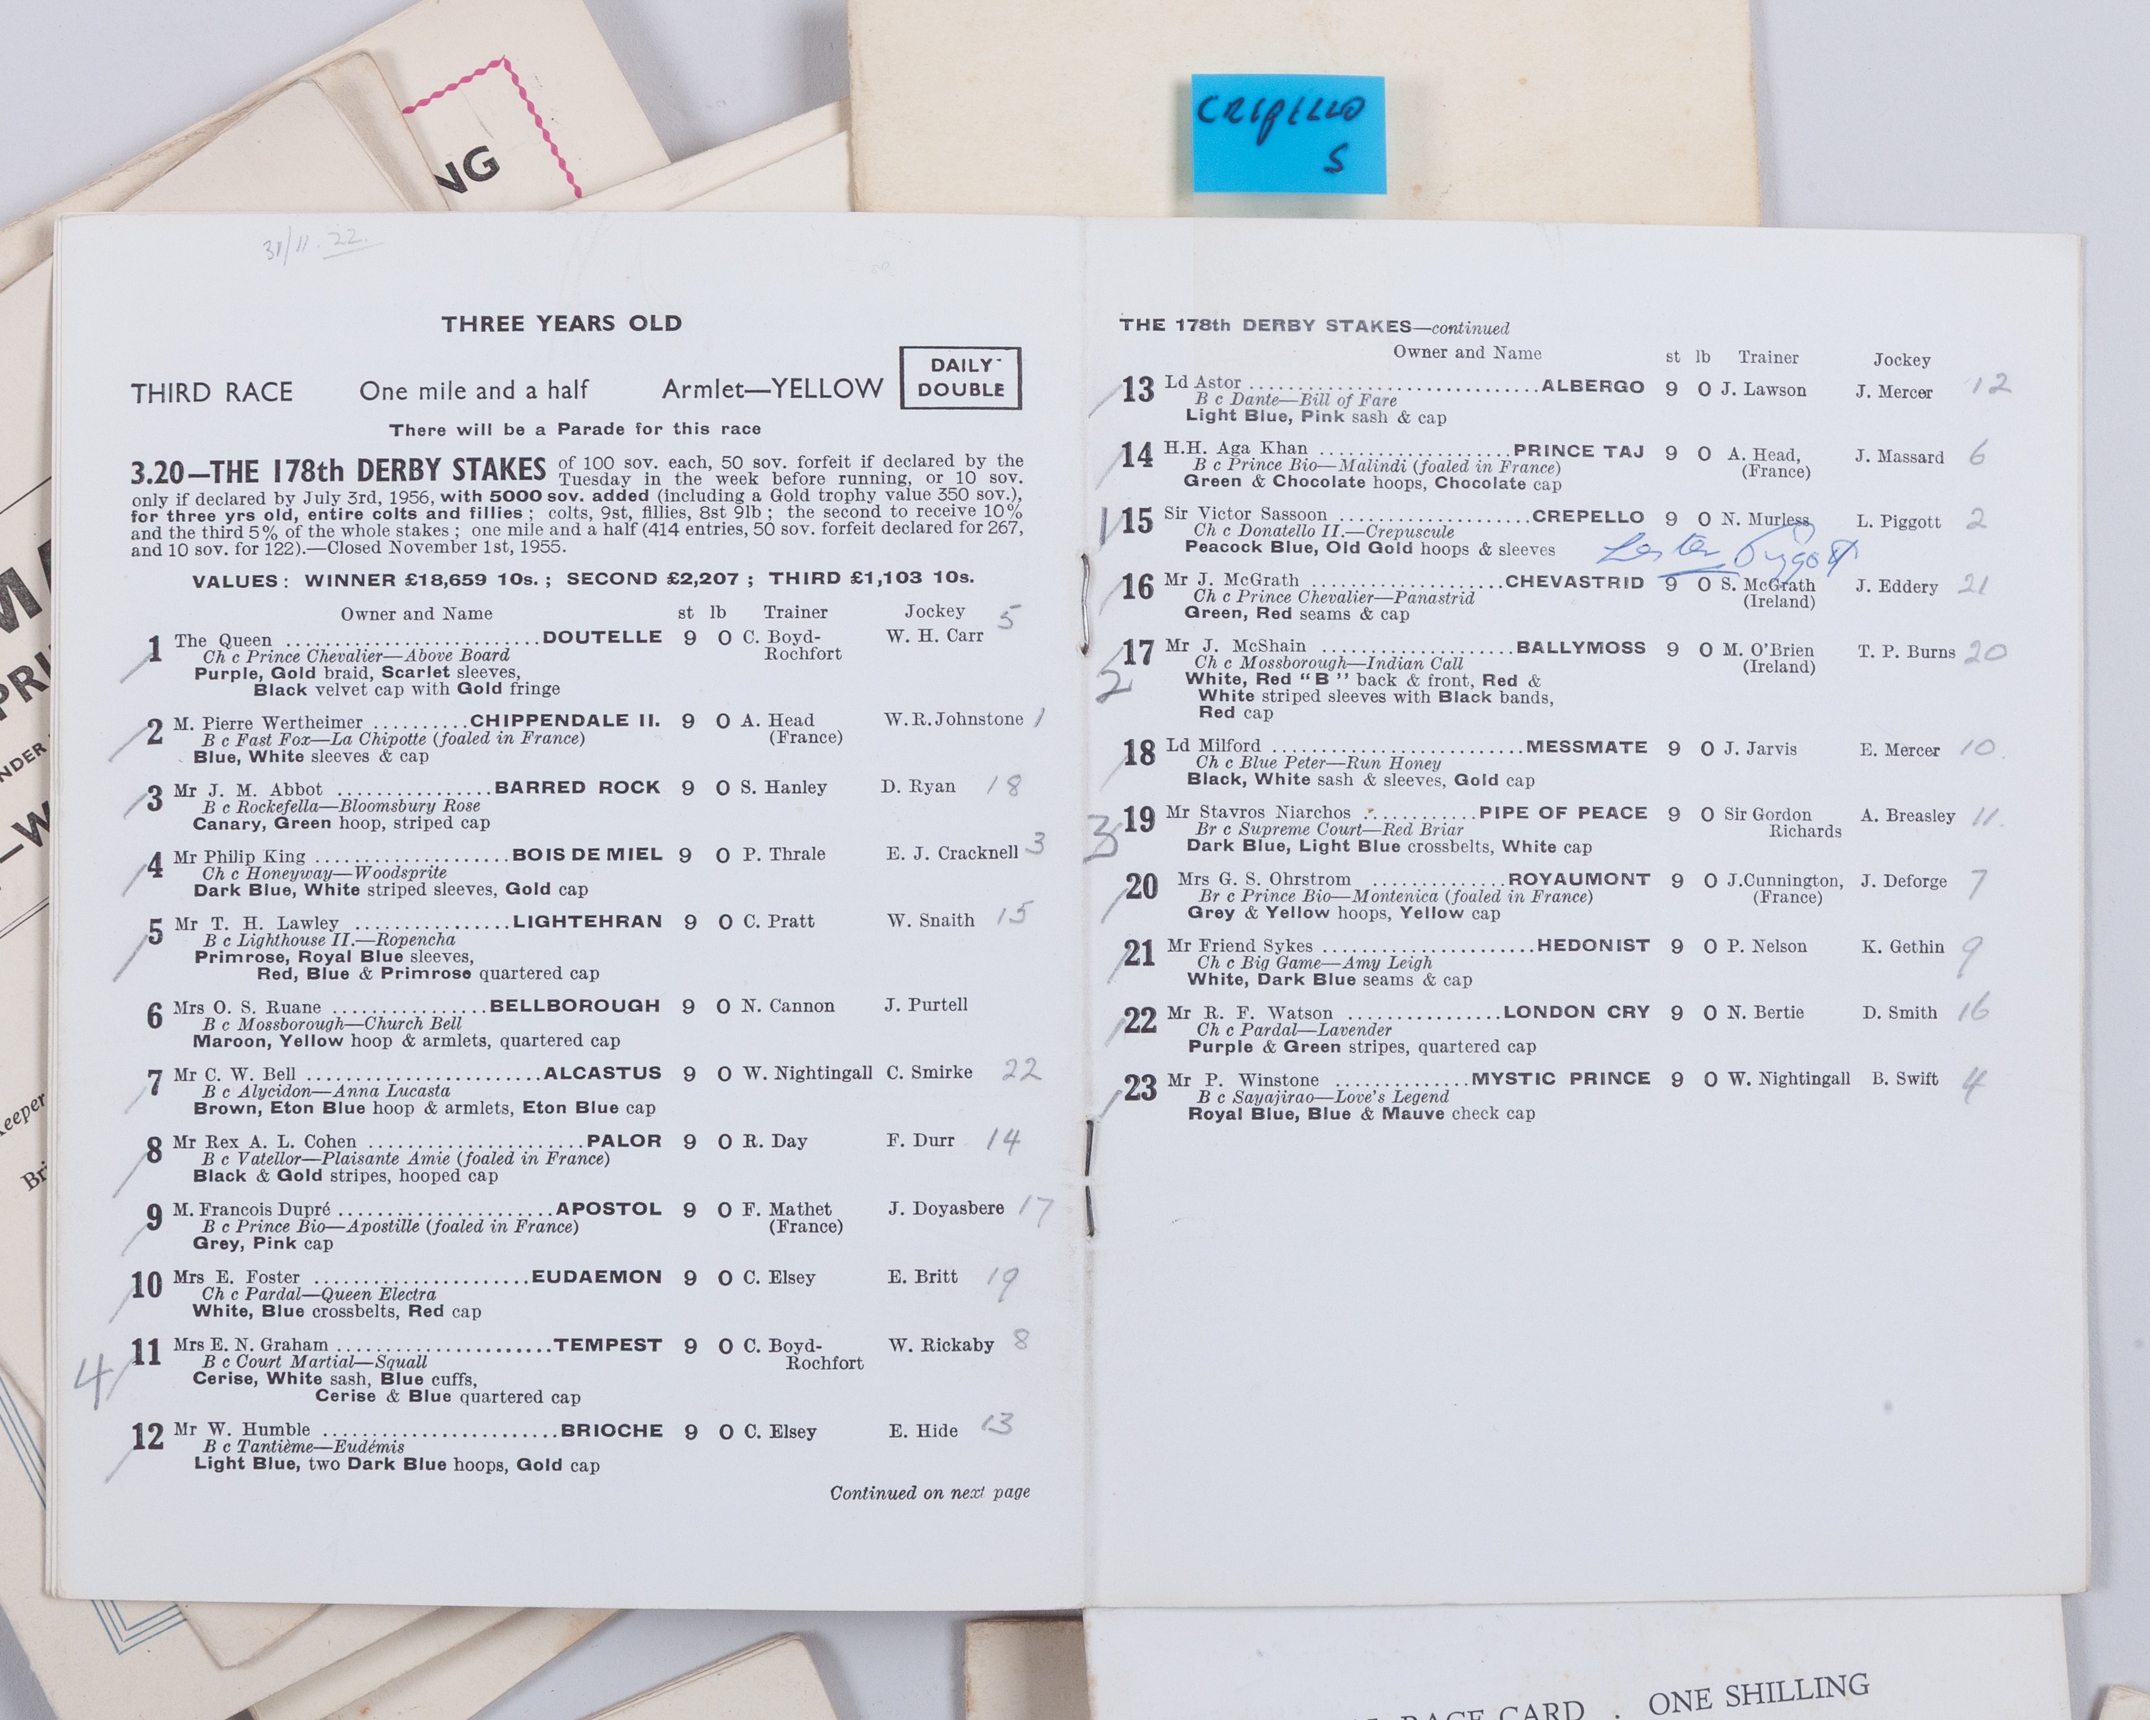 NG
CREPELLO
S
31/11.22.
THREE YEARS OLD
THIRD RACE One mile and a half Armlet—YELLOW DAILY DOUBLE
There will be a Parade for this race
3.20—THE 178th DERBY STAKES of 100 sov. each, 50 sov. forfeit if declared by the
Tuesday in the week before running, or 10 sov.
only if declared by July 3rd, 1956, with 5000 sov. added (including a Gold trophy value 350 sov.),
for three yrs old, entire colts and fillies; colts, 9st, fillies, 8st 9lb; the second to receive 10%
and the third 5% of the whole stakes; one mile and a half (414 entries, 50 sov. forfeit declared for 267,
and 10 sov. for 122).—Closed November 1st, 1955.
VALUES: WINNER £18,659 10s.; SECOND £2,207; THIRD £1,103 10s.
Owner and Name st lb Trainer Jockey
1 The Queen ..........................DOUTELLE 9 0 C. Boyd- W. H. Carr 5
Ch c Prince Chevalier—Above Board Rochfort
Purple, Gold braid, Scarlet sleeves,
Black velvet cap with Gold fringe
2 M. Pierre Wertheimer ..........CHIPPENDALE II. 9 0 A. Head W.R.Johnstone 1
B c Fast Fox—La Chipotte (foaled in France) (France)
Blue, White sleeves & cap
3 Mr J. M. Abbot ................BARRED ROCK 9 0 S. Hanley D. Ryan 18
B c Rockefella—Bloomsbury Rose
Canary, Green hoop, striped cap
4 Mr Philip King ....................BOIS DE MIEL 9 0 P. Thrale E. J. Cracknell 3
Ch c Honeyway—Woodsprite
Dark Blue, White striped sleeves, Gold cap
5 Mr T. H. Lawley ................LIGHTEHRAN 9 0 C. Pratt W. Snaith 15
B c Lighthouse II.—Ropencha
Primrose, Royal Blue sleeves,
Red, Blue & Primrose quartered cap
6 Mrs O. S. Ruane .................BELLBOROUGH 9 0 N. Cannon J. Purtell
B c Mossborough—Church Bell
Maroon, Yellow hoop & armlets, quartered cap
7 Mr C. W. Bell ........................ALCASTUS 9 0 W. Nightingall C. Smirke 22
B c Alycidon—Anna Lucasta
Brown, Eton Blue hoop & armlets, Eton Blue cap
8 Mr Rex A. L. Cohen ......................PALOR 9 0 R. Day F. Durr 14
B c Vatellor—Plaisante Amie (foaled in France)
Black & Gold stripes, hooped cap
9 M. Francois Dupré ......................APOSTOL 9 0 F. Mathet J. Doyasbere 17
B c Prince Bio—Apostille (foaled in France) (France)
Grey, Pink cap
10 Mrs E. Foster ......................EUDAEMON 9 0 C. Elsey E. Britt 19
Ch c Pardal—Queen Electra
White, Blue crossbelts, Red cap
4 11 Mrs E. N. Graham ......................TEMPEST 9 0 C. Boyd- W. Rickaby 8
B c Court Martial—Squall Rochfort
Cerise, White sash, Blue cuffs,
Cerise & Blue quartered cap
12 Mr W. Humble ........................BRIOCHE 9 0 C. Elsey E. Hide 13
B c Tantième—Eudémis
Light Blue, two Dark Blue hoops, Gold cap
Continued on next page
THE 178th DERBY STAKES—continued
Owner and Name st lb Trainer Jockey
13 Ld Astor ..............................ALBERGO 9 0 J. Lawson J. Mercer 12
B c Dante—Bill of Fare
Light Blue, Pink sash & cap
14 H.H. Aga Khan ....................PRINCE TAJ 9 0 A. Head, J. Massard 6
B c Prince Bio—Malindi (foaled in France) (France)
Green & Chocolate hoops, Chocolate cap
1 15 Sir Victor Sassoon ....................CREPELLO 9 0 N. Murless L. Piggott 2
Ch c Donatello II.—Crepuscule
Peacock Blue, Old Gold hoops & sleeves
Lester Piggott
16 Mr J. McGrath ....................CHEVASTRID 9 0 S. McGrath J. Eddery 21
Ch c Prince Chevalier—Panastrid (Ireland)
Green, Red seams & cap
2 17 Mr J. McShain ....................BALLYMOSS 9 0 M. O'Brien T. P. Burns 20
Ch c Mossborough—Indian Call (Ireland)
White, Red "B" back & front, Red &
White striped sleeves with Black bands,
Red cap
18 Ld Milford ..........................MESSMATE 9 0 J. Jarvis E. Mercer 10.
Ch c Blue Peter—Run Honey
Black, White sash & sleeves, Gold cap
3 19 Mr Stavros Niarchos ............PIPE OF PEACE 9 0 Sir Gordon A. Breasley 11.
Br c Supreme Court—Red Briar Richards
Dark Blue, Light Blue crossbelts, White cap
20 Mrs G. S. Ohrstrom ..............ROYAUMONT 9 0 J.Cunnington, J. Deforge 7
Br c Prince Bio—Montenica (foaled in France) (France)
Grey & Yellow hoops, Yellow cap
21 Mr Friend Sykes ......................HEDONIST 9 0 P. Nelson K. Gethin 9
Ch c Big Game—Amy Leigh
White, Dark Blue seams & cap
22 Mr R. F. Watson ................LONDON CRY 9 0 N. Bertie D. Smith 16
Ch c Pardal—Lavender
Purple & Green stripes, quartered cap
23 Mr P. Winstone .............MYSTIC PRINCE 9 0 W. Nightingall B. Swift 4
B c Sayajirao—Love's Legend
Royal Blue, Blue & Mauve check cap
RACE CARD . ONE SHILLING